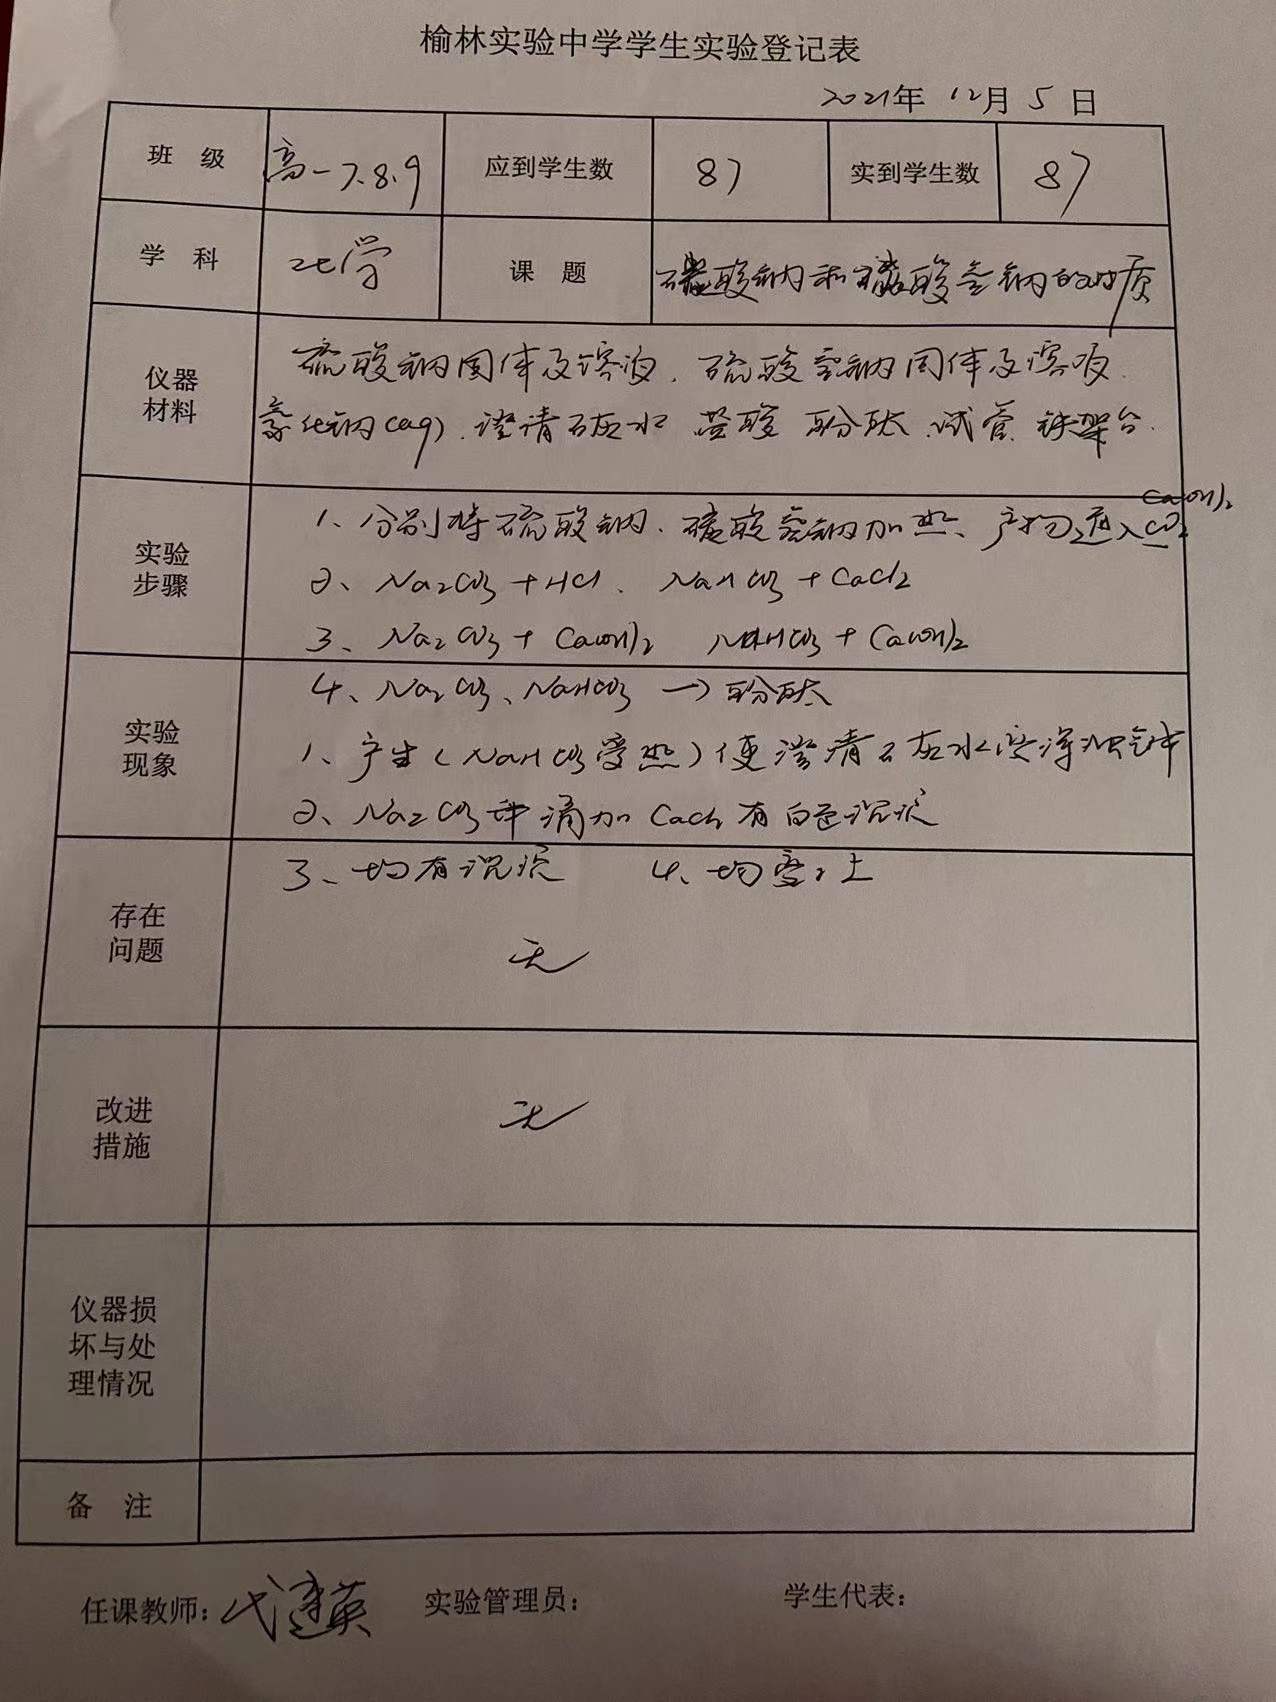 榆林实验中学学生实验登记表
2021年 12月 5 日
班 级 高一7.8.9 应到学生数 87 实到学生数 87
学 科 化学 课 题 碳酸钠和碳酸氢钠的性质
仪器材料
硫酸钠固体及溶液、硫酸氢钠固体及溶液、
氯化钠(aq)、澄清石灰水 盐酸 酚酞、试管、铁架台.
实验步骤
Ca(OH)2
1、分别将硫酸钠、碳酸氢钠加热、产物通入
2、Na2CO3 + HCl、 NaHCO3 + CaCl2
3、Na2CO3 + Ca(OH)2 NaHCO3 + Ca(OH)2
4、Na2CO3、NaHCO3 → 酚酞
实验现象
1、产生(NaHCO3受热)使澄清石灰水变浑浊气体
2、Na2CO3中滴加 CaCl2 有白色沉淀
3、均有沉淀 4、均变红
存在问题
无
改进措施
无
仪器损坏与处理情况
备 注
任课教师: 代建英 实验管理员: 学生代表: